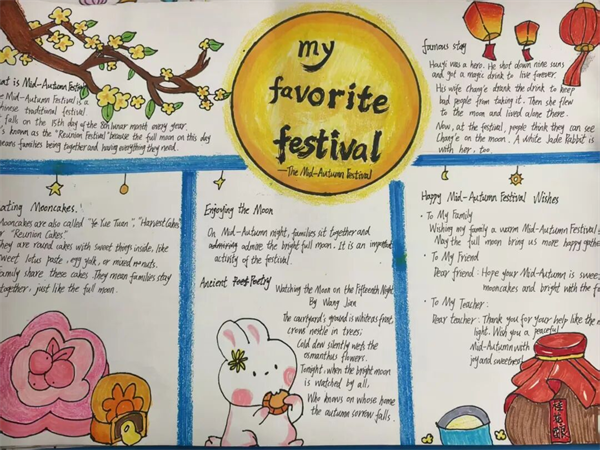 my
favorite
festival
—The Mid-Autumn Festival
at is Mid-Autumn Festival
e Mid-Autumn Festival is a
inese traditional festival
falls on the 15th day of the 8th lunar month every year.
s known as the "Reunion Festival" because the full moon on this day
eans families being together and having everything they need.
famous story
Houyi was a hero. He shot down nine suns
and got a magic drink to live forever.
His wife Chang'e drank the drink to keep
bad people from taking it. Then she flew
to the moon and lived alone there.
Now, at the festival, people think they can see
Chang'e on the moon. A white Jade Rabbit is
with her, too
ating Mooncakes.
Mooncakes are also called "Yo Tue Tuan", "Harvest Cakes"
r "Reunion Cakes"
They are round cakes with sweet things inside, like
weet lotus paste, egg yolk, or mixed nuts.
amily share these cakes They mean families stay
together, just like the full moon.
Enjoying the Moon
On Mid-Autumn night, families sit together and
admire the bright full moon. It is an
activity of the festival.
Ancient Poetry
Watching the Moon on the Fifteenth Night
By Wang Jian
The courtyard's ground is white as frost,
crows nestle in trees;
Cold dew silently wets the
osmanthus flowers.
Tonight, when the bright moon
is watched by all,
Who knows on whose home
the autumn sorrow falls
Happy Mid-Autumn Festival Wishes
· To My Family
Wishing my family a warm Mid-Autumn Festival
May the full moon bring us more happy
· To My Friend
Dear friend: Hope your Mid-Autumn is
mooncakes and bright with the
· To My Teacher:
Dear teacher: Thank you for your help like the
light. Wish you a peaceful
Mid-Autumn with
joy and sweetness